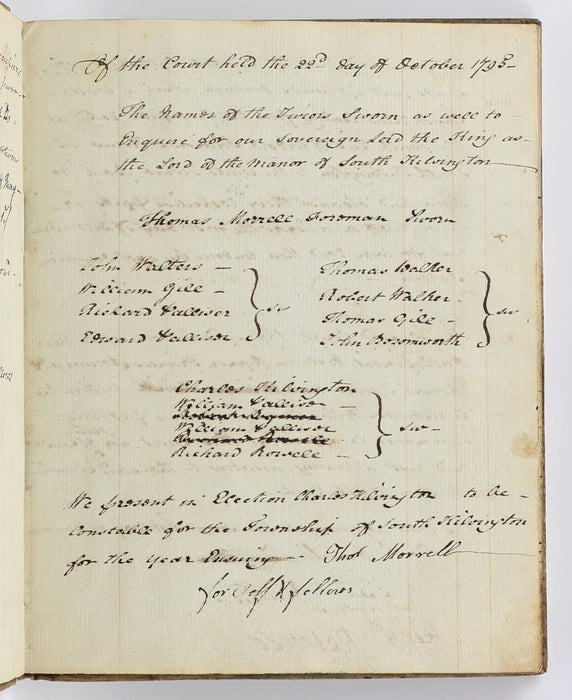 Of the Court held the 22d day of October 1795
The Names of the Jurors Sworn as well to
Enquire for our Sovereign Lord the King as
the Lord of the Manor of South Kilvington
Thomas Morrell Foreman Sworn
John Walters Thomas Walker
William Gill Robert Walker
Richard Falliser Thomas Gill
Edward Falliser John Bosomworth
sw sw
Charles Kilvington
William Falliser
William Falliser
Richard Rowell
sw
We present in Election Charles Kilvington to be
Constable for the Township of South Kilvington
for the year Ensuing Thos Morrell
for Self & fellows